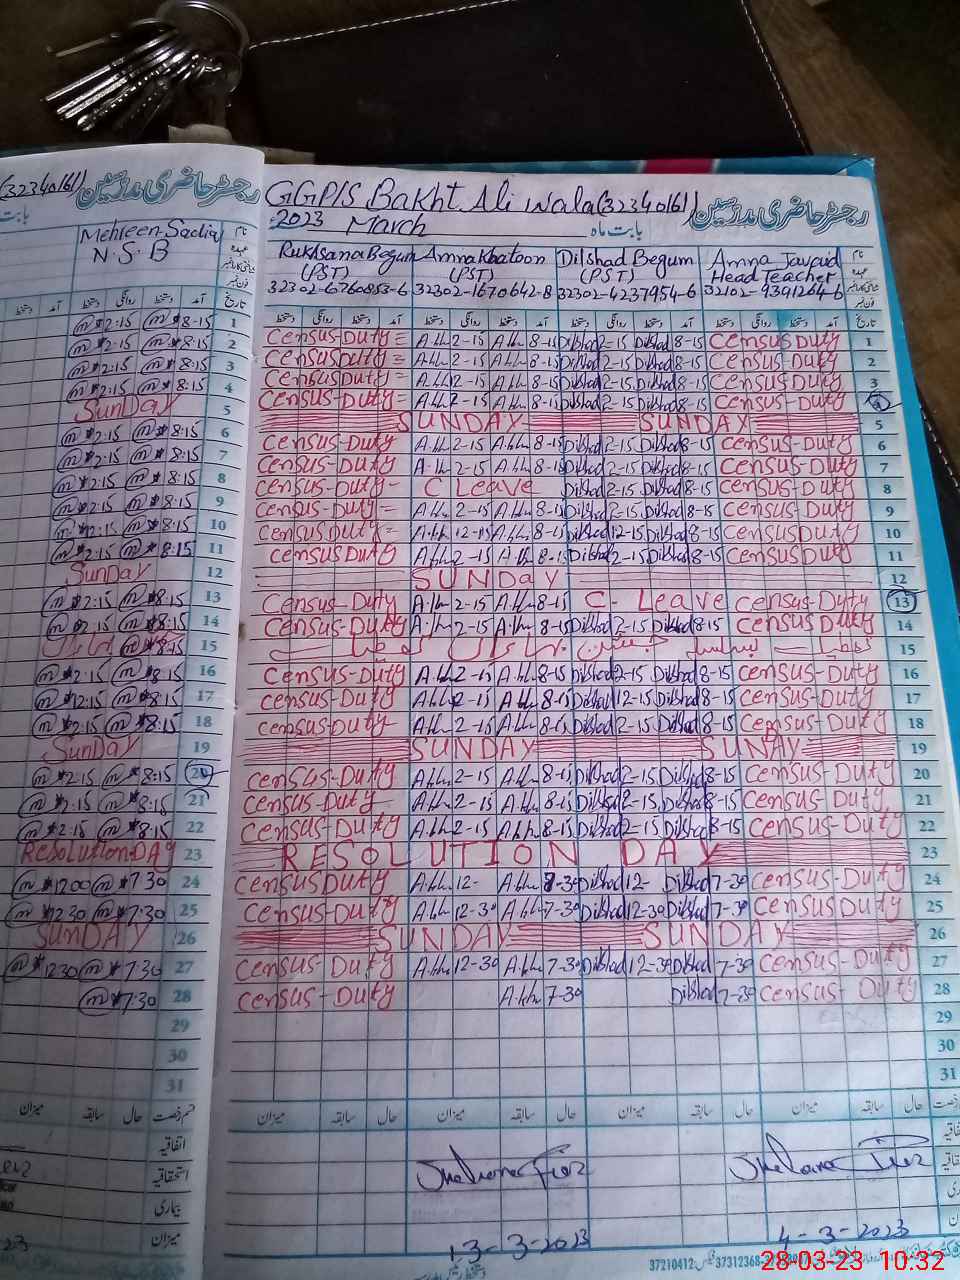 (32340161) رجسٹر حاضری مدرسین
GGP/S Bakht Ali wala (32340161) رجسٹر حاضری مدرسین
2023 March بابت ماہ
Mehreen Sadia
N.S.B
Rukhsana Begum Amna Khatoon Dilshad Begum Amna Javaid نام
(PST) (PST) (PST) Head Teacher عہدہ
32302-6760853-6 32302-1670642-8 32302-4237954-6 32102-9391264-6
دستخط روانگی دستخط آمد دستخط روانگی دستخط آمد دستخط روانگی دستخط آمد دستخط روانگی دستخط آمد تاریخ
2:15 8-15 1 Census Duty = A.kh 2-15 A.kh 8-15 Dilshad 2-15 Dilshad 8-15 Census Duty 1
2:15 8:15 2 Census Duty = A.kh 2-15 A.kh 8-15 Dilshad 2-15 Dilshad 8-15 Census Duty 2
2:15 8:15 3 Census Duty = A.kh 2-15 A.kh 8-15 Dilshad 2-15 Dilshad 8-15 Census Duty 3
2:15 8:15 4 Census Duty = A.kh 2-15 A.kh 8-15 Dilshad 2-15 Dilshad 8-15 Census-Duty 4
SunDay 5 SUNDAY SUNDAY 5
2:15 8:15 6 Census-Duty A.kh 2-15 A.kh 8-15 Dilshad 2-15 Dilshad 8-15 Census-Duty 6
2:15 8:15 7 Census-Duty A.kh 2-15 A.kh 8-15 Dilshad 2-15 Dilshad 8-15 Census-Duty 7
2:15 8:15 8 Census-Duty - C Leave Dilshad 2-15 Dilshad 8-15 Census-Duty 8
2:15 8:15 9 Census-Duty = A.kh 2-15 A.kh 8-15 Dilshad 2-15 Dilshad 8-15 Census-Duty 9
12:15 8:15 10 Census Duty = A.kh 12-15 A.kh 8-15 Dilshad 12-15 Dilshad 8-15 Census-Duty 10
2:15 8:15 11 Census Duty A.kh 2-15 A.kh 8-15 Dilshad 2-15 Dilshad 8-15 Census Duty 11
SunDay 12 SUNDAY 12
2:15 8:15 13 Census-Duty A.kh 2-15 A.kh 8-15 C- Leave Census-Duty 13
2:15 8:15 14 Census-Duty A.kh 2-15 A.kh 8-15 Dilshad 2-15 Dilshad 8-15 Census-Duty 14
8:15 15 تعطیل بسلسلہ جشن بہاراں تعطیل 15
2:15 8:15 16 Census-Duty A.kh 2-15 A.kh 8-15 Dilshad 2-15 Dilshad 8-15 Census-Duty 16
12:15 8:15 17 Census-Duty A.kh 12-15 A.kh 8-15 Dilshad 12-15 Dilshad 8-15 Census-Duty 17
2:15 8:15 18 Census-Duty A.kh 2-15 A.kh 8-15 Dilshad 2-15 Dilshad 8-15 Census-Duty 18
SunDay 19 SUNDAY SUNAY 19
2:15 8:15 20 Census-Duty A.kh 2-15 A.kh 8-15 Dilshad 2-15 Dilshad 8-15 Census-Duty 20
2:15 8:15 21 Census-Duty A.kh 2-15 A.kh 8-15 Dilshad 2-15 Dilshad 8-15 Census-Duty 21
2:15 8:15 22 Census-Duty A.kh 2-15 A.kh 8-15 Dilshad 2-15 Dilshad 8-15 Census-Duty 22
Resolution DAY 23 RESOLUTION DAY 23
1200 7.30 24 Census Duty A.kh 12- A.kh 7-30 Dilshad 12- Dilshad 7-30 Census-Duty 24
1230 7.30 25 Census-Duty A.kh 12-30 A.kh 7-30 Dilshad 12-30 Dilshad 7-30 Census-Duty 25
SunDAY 26 SUNDAY SUNDAY 26
1230 7.30 27 Census-Duty A.kh 12-30 A.kh 7-30 Dilshad 12-30 Dilshad 7-30 Census-Duty 27
7:30 28 Census-Duty A.kh 7-30 Dilshad 7-30 Census-Duty 28
29 29
30 30
31 31
میزان سابقہ حال قسم رخصت میزان سابقہ حال میزان سابقہ حال میزان سابقہ حال
اتفاقیہ
استحقاقیہ
بیماری
میزان
13-3-2023 4-3-2023
37210412 37312368
28-03-23 10:32